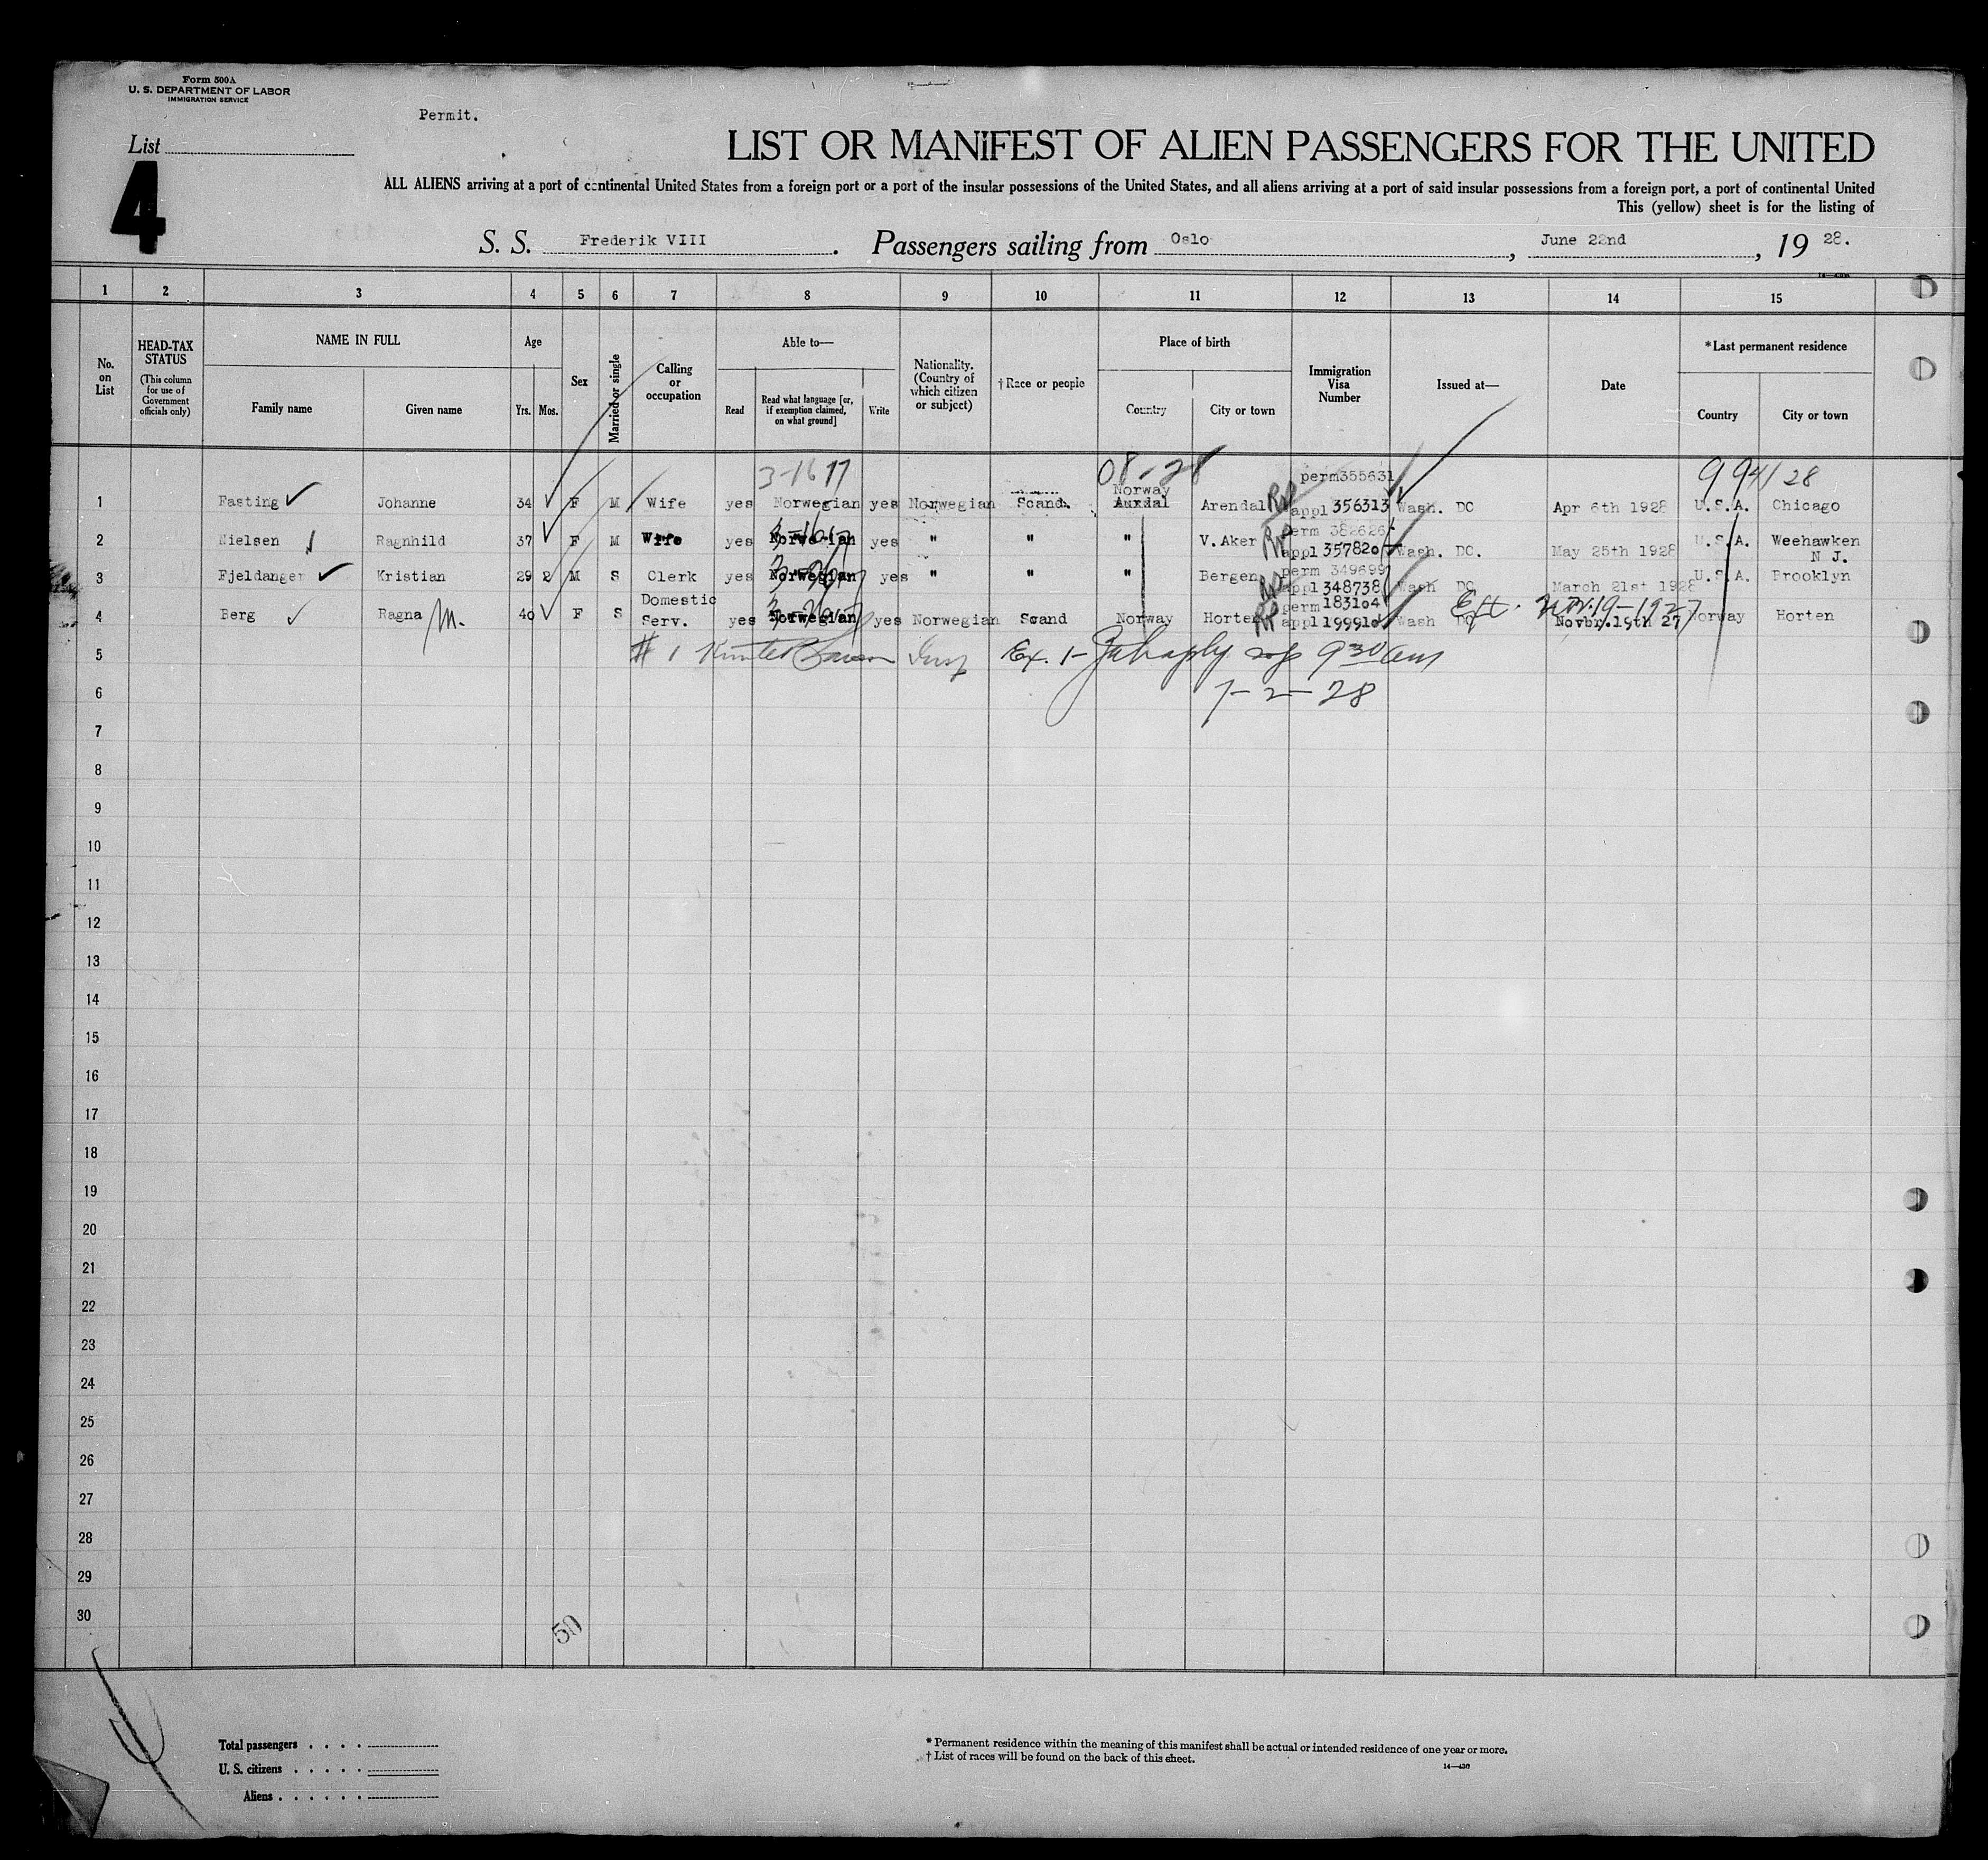 Form 500A
U. S. DEPARTMENT OF LABOR
IMMIGRATION SERVICE
Permit.
List
4
LIST OR MANIFEST OF ALIEN PASSENGERS FOR THE UNITED
ALL ALIENS arriving at a port of continental United States from a foreign port or a port of the insular possessions of the United States, and all aliens arriving at a port of said insular possessions from a foreign port, a port of continental United
This (yellow) sheet is for the listing of
S. S. Frederik VIII. Passengers sailing from Oslo, June 22nd, 19 28.
1 2 3 4 5 6 7 8 9 10 11 12 13 14 15
No. on List
HEAD-TAX STATUS (This column for use of Government officials only)
NAME IN FULL
Family name Given name
Age
Yrs. Mos.
Sex
Married or single
Calling or occupation
Able to—
Read Read what language [or, if exemption claimed, on what ground] Write
Nationality. (Country of which citizen or subject)
† Race or people
Place of birth
Country City or town
Immigration Visa Number
Issued at—
Date
* Last permanent residence
Country City or town
3-1677 08-28 perm355631 994128
Norway
1 Fasting Johanne 34 F M Wife yes Norwegian yes Norwegian Scand. Auxdal Arendal appl 356313 Wash. DC Apr 6th 1928 U.S.A. Chicago
perm 382626
2 Nielsen Ragnhild 37 F M Wife yes Norwegian yes " " " V. Aker appl 357820 Wash. DC. May 25th 1928 U.S.A. Weehawken N J.
perm 349699
3 Fjeldanger Kristian 29 2 M S Clerk yes Norwegian yes " " " Bergen appl 348738 Wash DC March 21st 1928 U.S.A. Brooklyn
perm 183104 Ext. 19-1927
4 Berg Ragna M. 40 F S Domestic Serv. yes Norwegian yes Norwegian Scand Norway Horten appl 199910 Wash DC Novbr. 19th 27 Norway Horten
5 # 1 Insp Ex. 1- 9 30 am
6 7-2-28
7
8
9
10
11
12
13
14
15
16
17
18
19
20
21
22
23
24
25
26
27
28
29
30
50
Total passengers
U. S. citizens
Aliens
* Permanent residence within the meaning of this manifest shall be actual or intended residence of one year or more.
† List of races will be found on the back of this sheet.
14—430